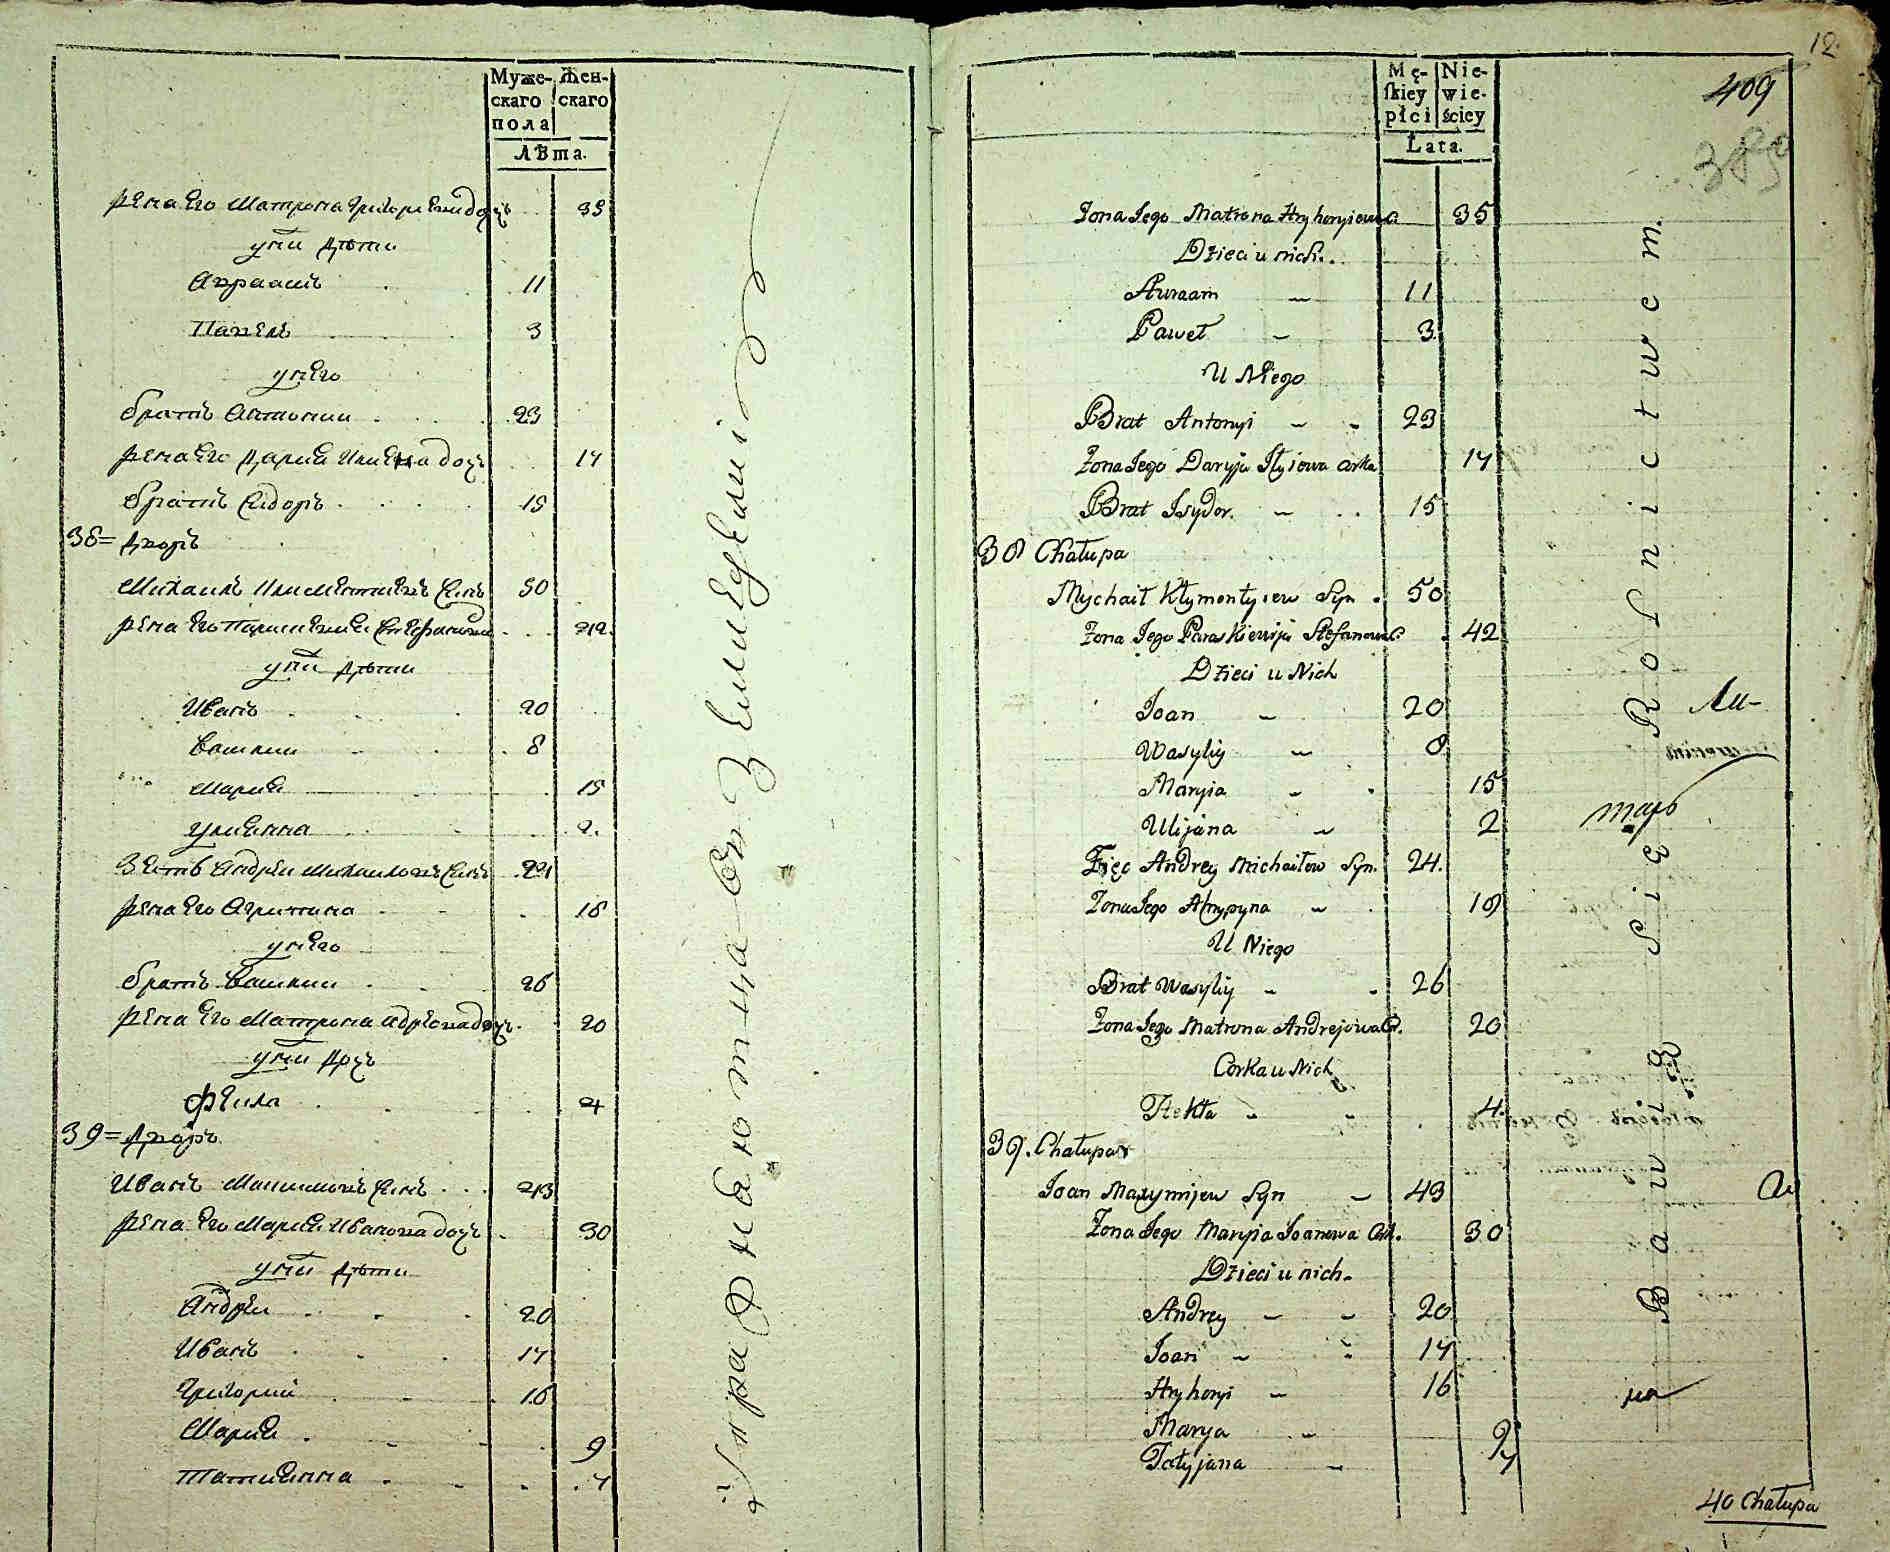 Муже-
скаго
пола
Жен-
скаго
Лѣта.
жена его Матрона Григориева дочь 35
у них дѣти
Авраамъ 11
Павелъ 3
у него
братъ Антонии 23
жена его Дария Илиева дочь 17
братъ Сидоръ 15
38 = Дворъ
Михаилъ Климентиевъ сынъ 50
жена его Параскевия Стефанова 42
у них дѣти
Иванъ 20
Василии 8
Мария 15
Улиянна 2.
Зять Андреи Михаиловъ сынъ 24
жена его Агрипина 18
у него
братъ Василии 26
жена его Матрона Андреева дочь 20
у них дочь
Фекла 4
39 = Дворъ
Иванъ Максимовъ сынъ 43
жена его Мария Иванова дочь 30
у них дѣти
Андреи 20
Иванъ 17
Григории 16
Мария 9
Татиянна 7
Упражняются въ земледелии
12
Mę-
skiey
płci
Nie-
wie-
ściey
Lata.
409
389
Żona Jego Matrona Hryhoryiowa C. 35
Dzieci u nich.
Awraam 11
Paweł 3
U Niego
Brat Antonyi 23
Żona Jego Daryja Iłyiowa Corka 17
Brat Isydor. 15
38 Chałupa
Mychaił Kłymontyiew Syn 50
Żona Jego Paraskiewija Stefanowa C. 42
Dzieci u Nich
Joan 20
Wasyliy 8
Maryia 15
Ulijana 2
Zięć Andrey Michaiłow Syn. 24.
Żona Jego Ahrypyna 18
U Niego
Brat Wasyliy 26
Żona Jego Matrona Andrejowa C. 20
Corka u Nich
Tekła 4.
39. Chałupa
Joan Maxymijew Syn 43
Żona Jego Maryia Joanowa Cork. 30
Dzieci u nich.
Andrey 20
Joan 17
Hryhoryi 16
Marya 9
Tatyjana 7
Bawią Się Rolnictwem.
Ли-
таръ
на
40 Chałupa